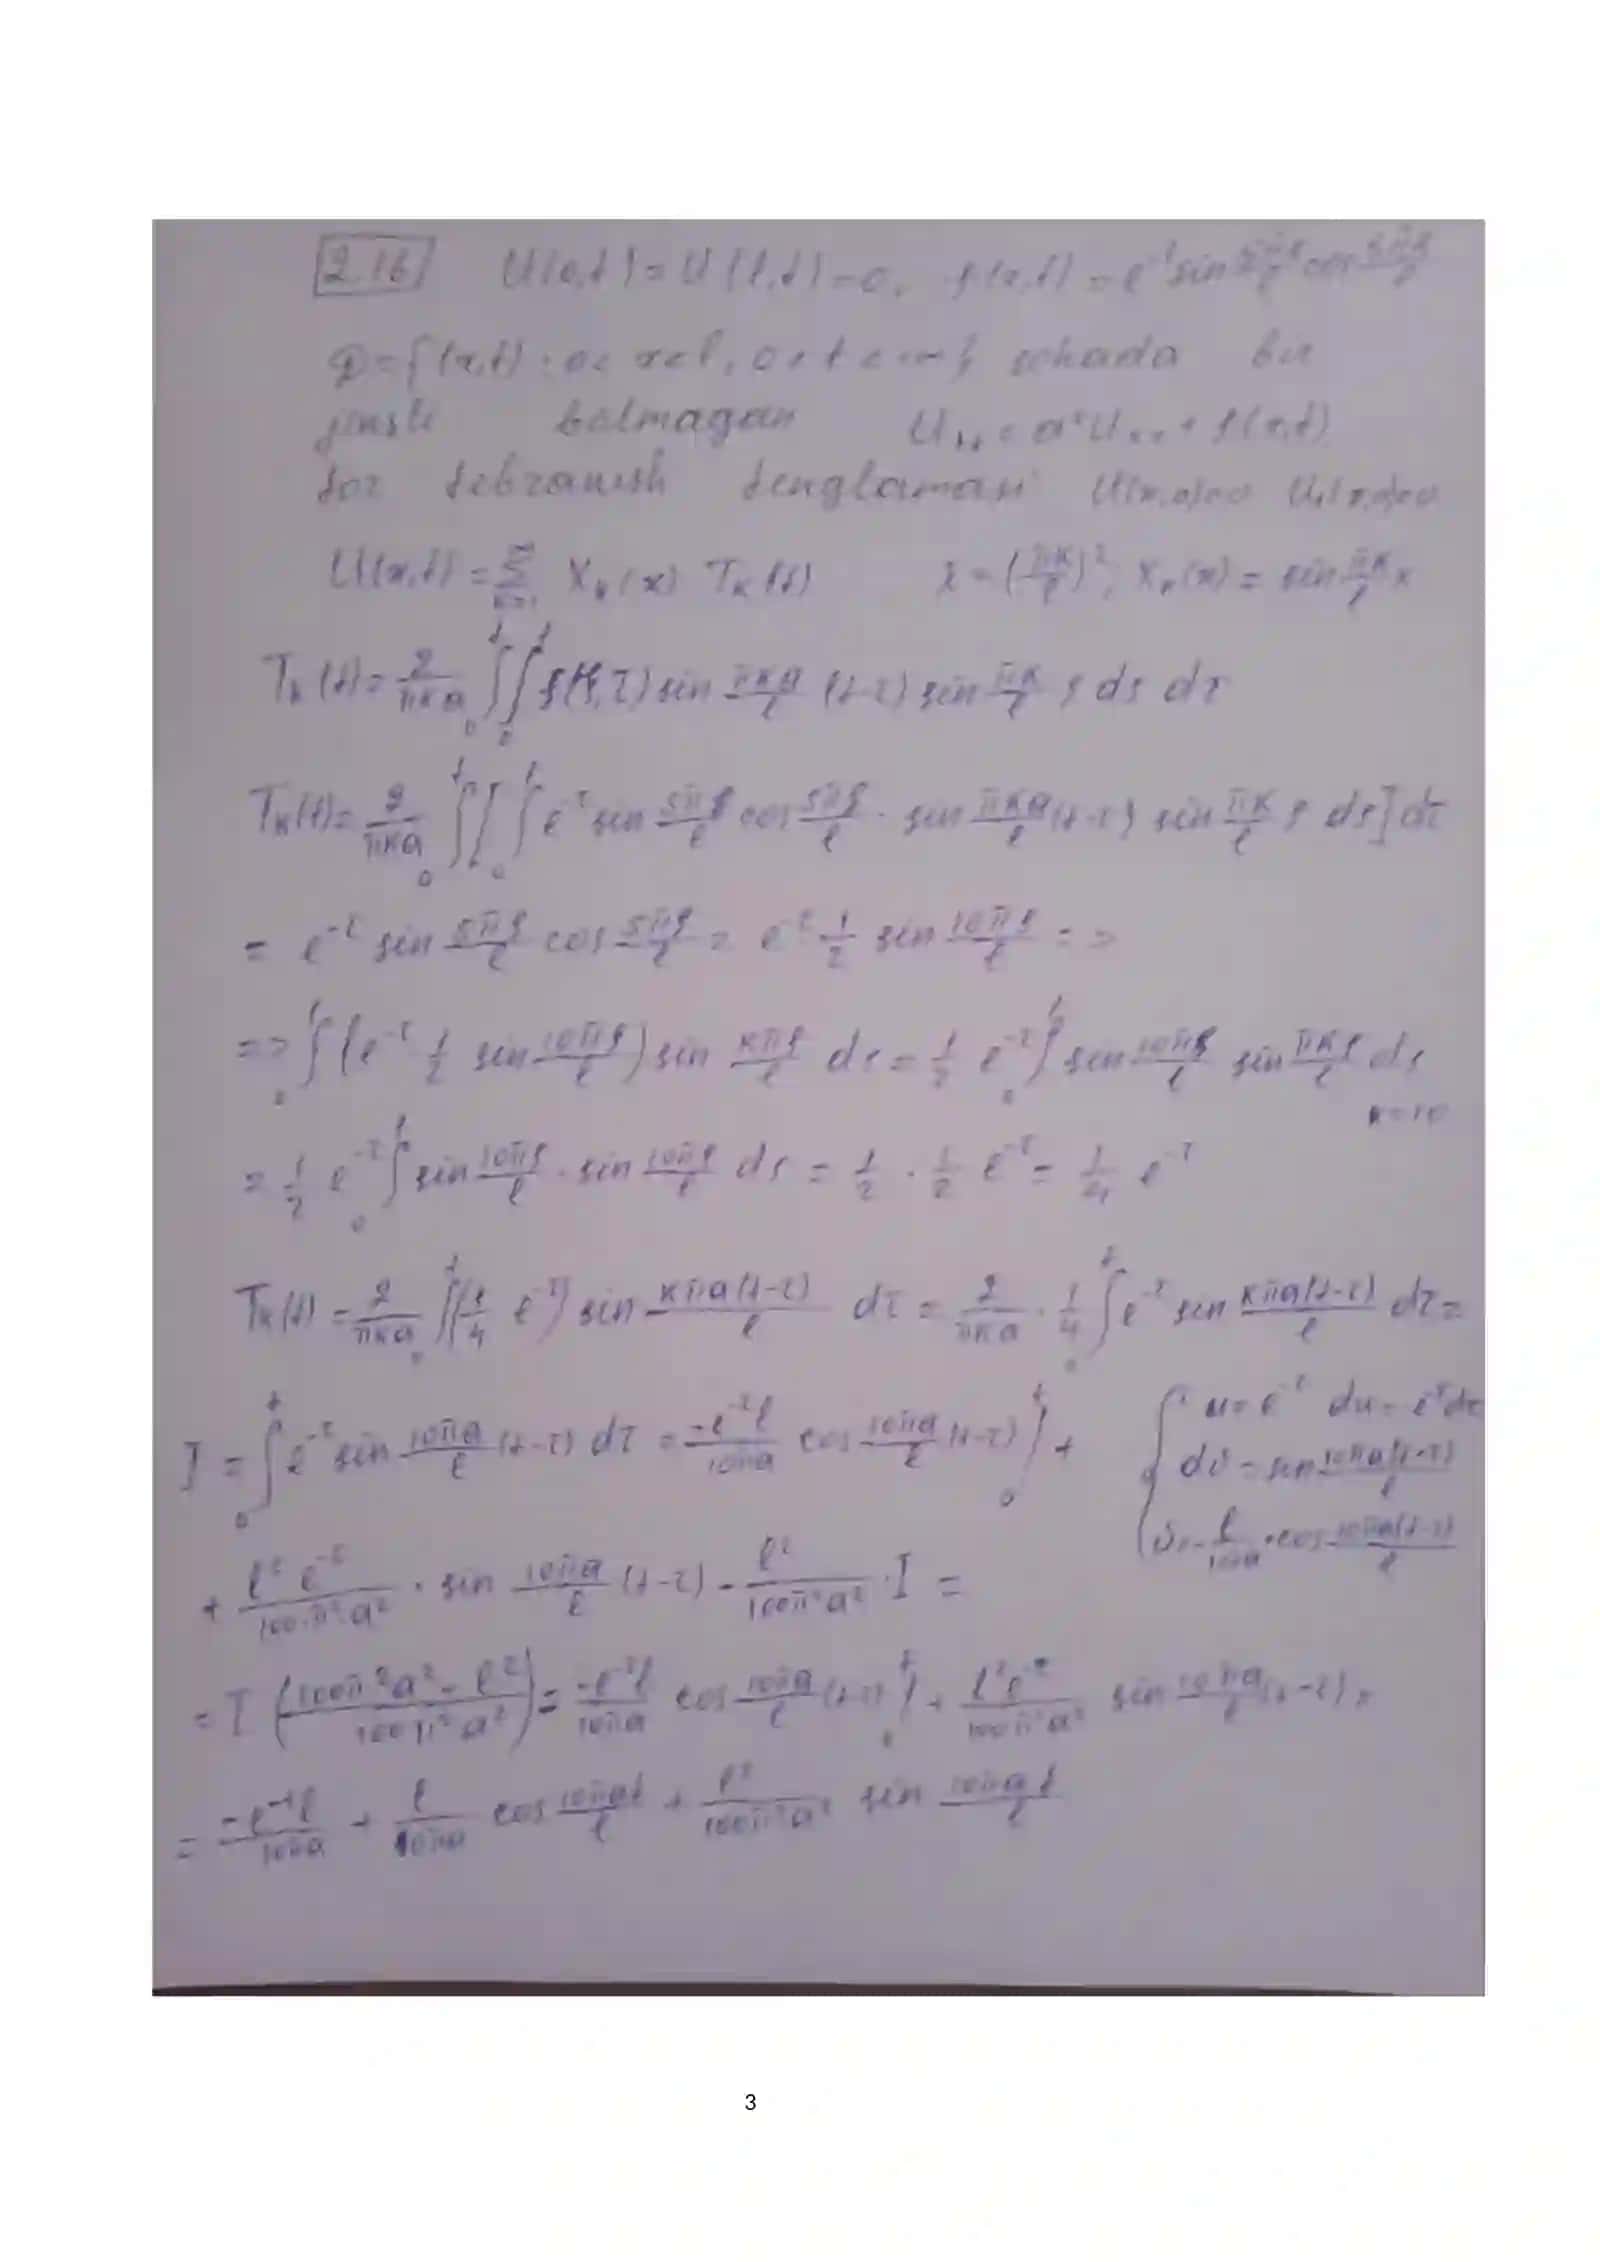 2.16 U(0,t) = U(l,t) = 0, f(x,t) = e^{-t} sin 5πς/l cos 5πς/l
D = {(x,t): 0 < x < l, 0 < t < ∞} sohada bir
jinsli bolmagan U_tt = a² U_xx + f(x,t)
tor tebranish tenglamasi U(x,0)=0 U_t(x,0)=0
U(x,t) = Σ_{k=1}^{∞} X_k(x) T_k(t) λ = (πk/l)², X_k(x) = sin πk/l x
T_k(t) = 2/πka ∫_0^t ∫_0^l f(ς,τ) sin πka/l (t-τ) sin πk/l ς dς dτ
T_k(t) = 2/πka ∫_0^t [∫_0^l e^{-τ} sin 5πς/l cos 5πς/l · sin πka/l (t-τ) sin πk/l ς dς] dτ
= e^{-τ} sin 5πς/l cos 5πς/l = e^{-τ} 1/2 sin 10πς/l =>
=> ∫_0^l (e^{-τ} 1/2 sin 10πς/l) sin kπς/l dς = 1/2 e^{-τ} ∫_0^l sin 10πς/l sin πkς/l dς
k=10
= 1/2 e^{-τ} ∫_0^l sin 10πς/l · sin 10πς/l dς = 1/2 · 1/2 e^{-τ} = 1/4 e^{-τ}
T_k(t) = 2/πka ∫_0^t (1/4 e^{-τ}) sin kπa(t-τ)/l dτ = 2/πka · 1/4 ∫_0^t e^{-τ} sin kπa(t-τ)/l dτ =
I = ∫_0^t e^{-τ} sin 10πa/l (t-τ) dτ = -e^{-τ} l/10πa cos 10πa/l (t-τ) |_0^t +
{ u = e^{-τ} du = e^{-τ} dτ
dv = sin 10πa(t-τ)/l
v = - l/10πa · cos 10πa(t-τ)/l
+ l² e^{-τ}/100π²a² · sin 10πa/l (t-τ) - l²/100π²a² · I =
= I (100π²a² - l²/100π²a²) = -e^{-τ} l/10πa cos 10πa/l (t-τ) |_0^t + l² e^{-τ}/100π²a² sin 10πa/l (t-τ) =
= -e^{-t} l/10πa + l/10πa cos 10πat/l + l²/100π²a² sin 10πat/l
3